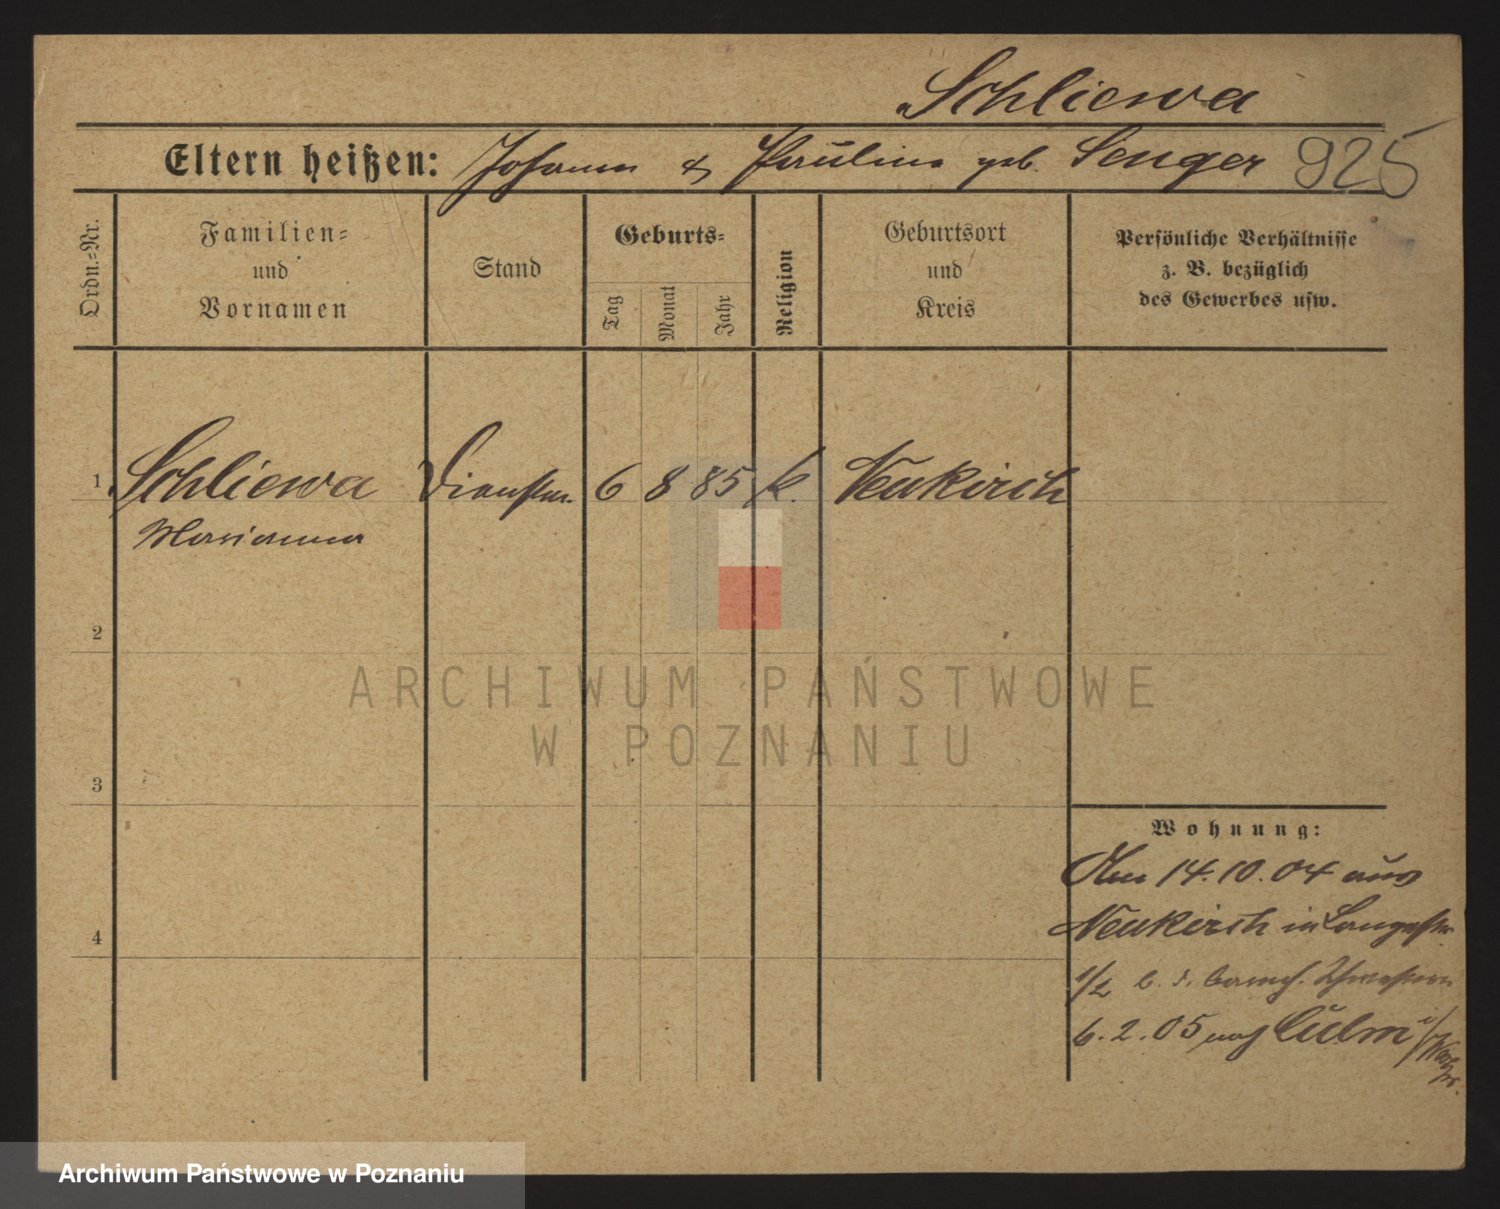 Schliewa
Eltern heißen: Johann & Pauline geb. Senger 925
Ordn.-Nr.
Familien-
und
Vornamen
Stand
Geburts-
Tag
Monat
Jahr
Religion
Geburtsort
und
Kreis
Persönliche Verhältnisse
z. B. bezüglich
des Gewerbes usw.
1 Schliewa Dienstm. 6 8 85 k. Neukirch
Marianna
2
ARCHIWUM PAŃSTWOWE
W POZNANIU
3
Wohnung:
14.10.04 aus
Neukirch in Langestr.
4
1/2 b. d.
6.2.05 nach Culm
Archiwum Państwowe w Poznaniu